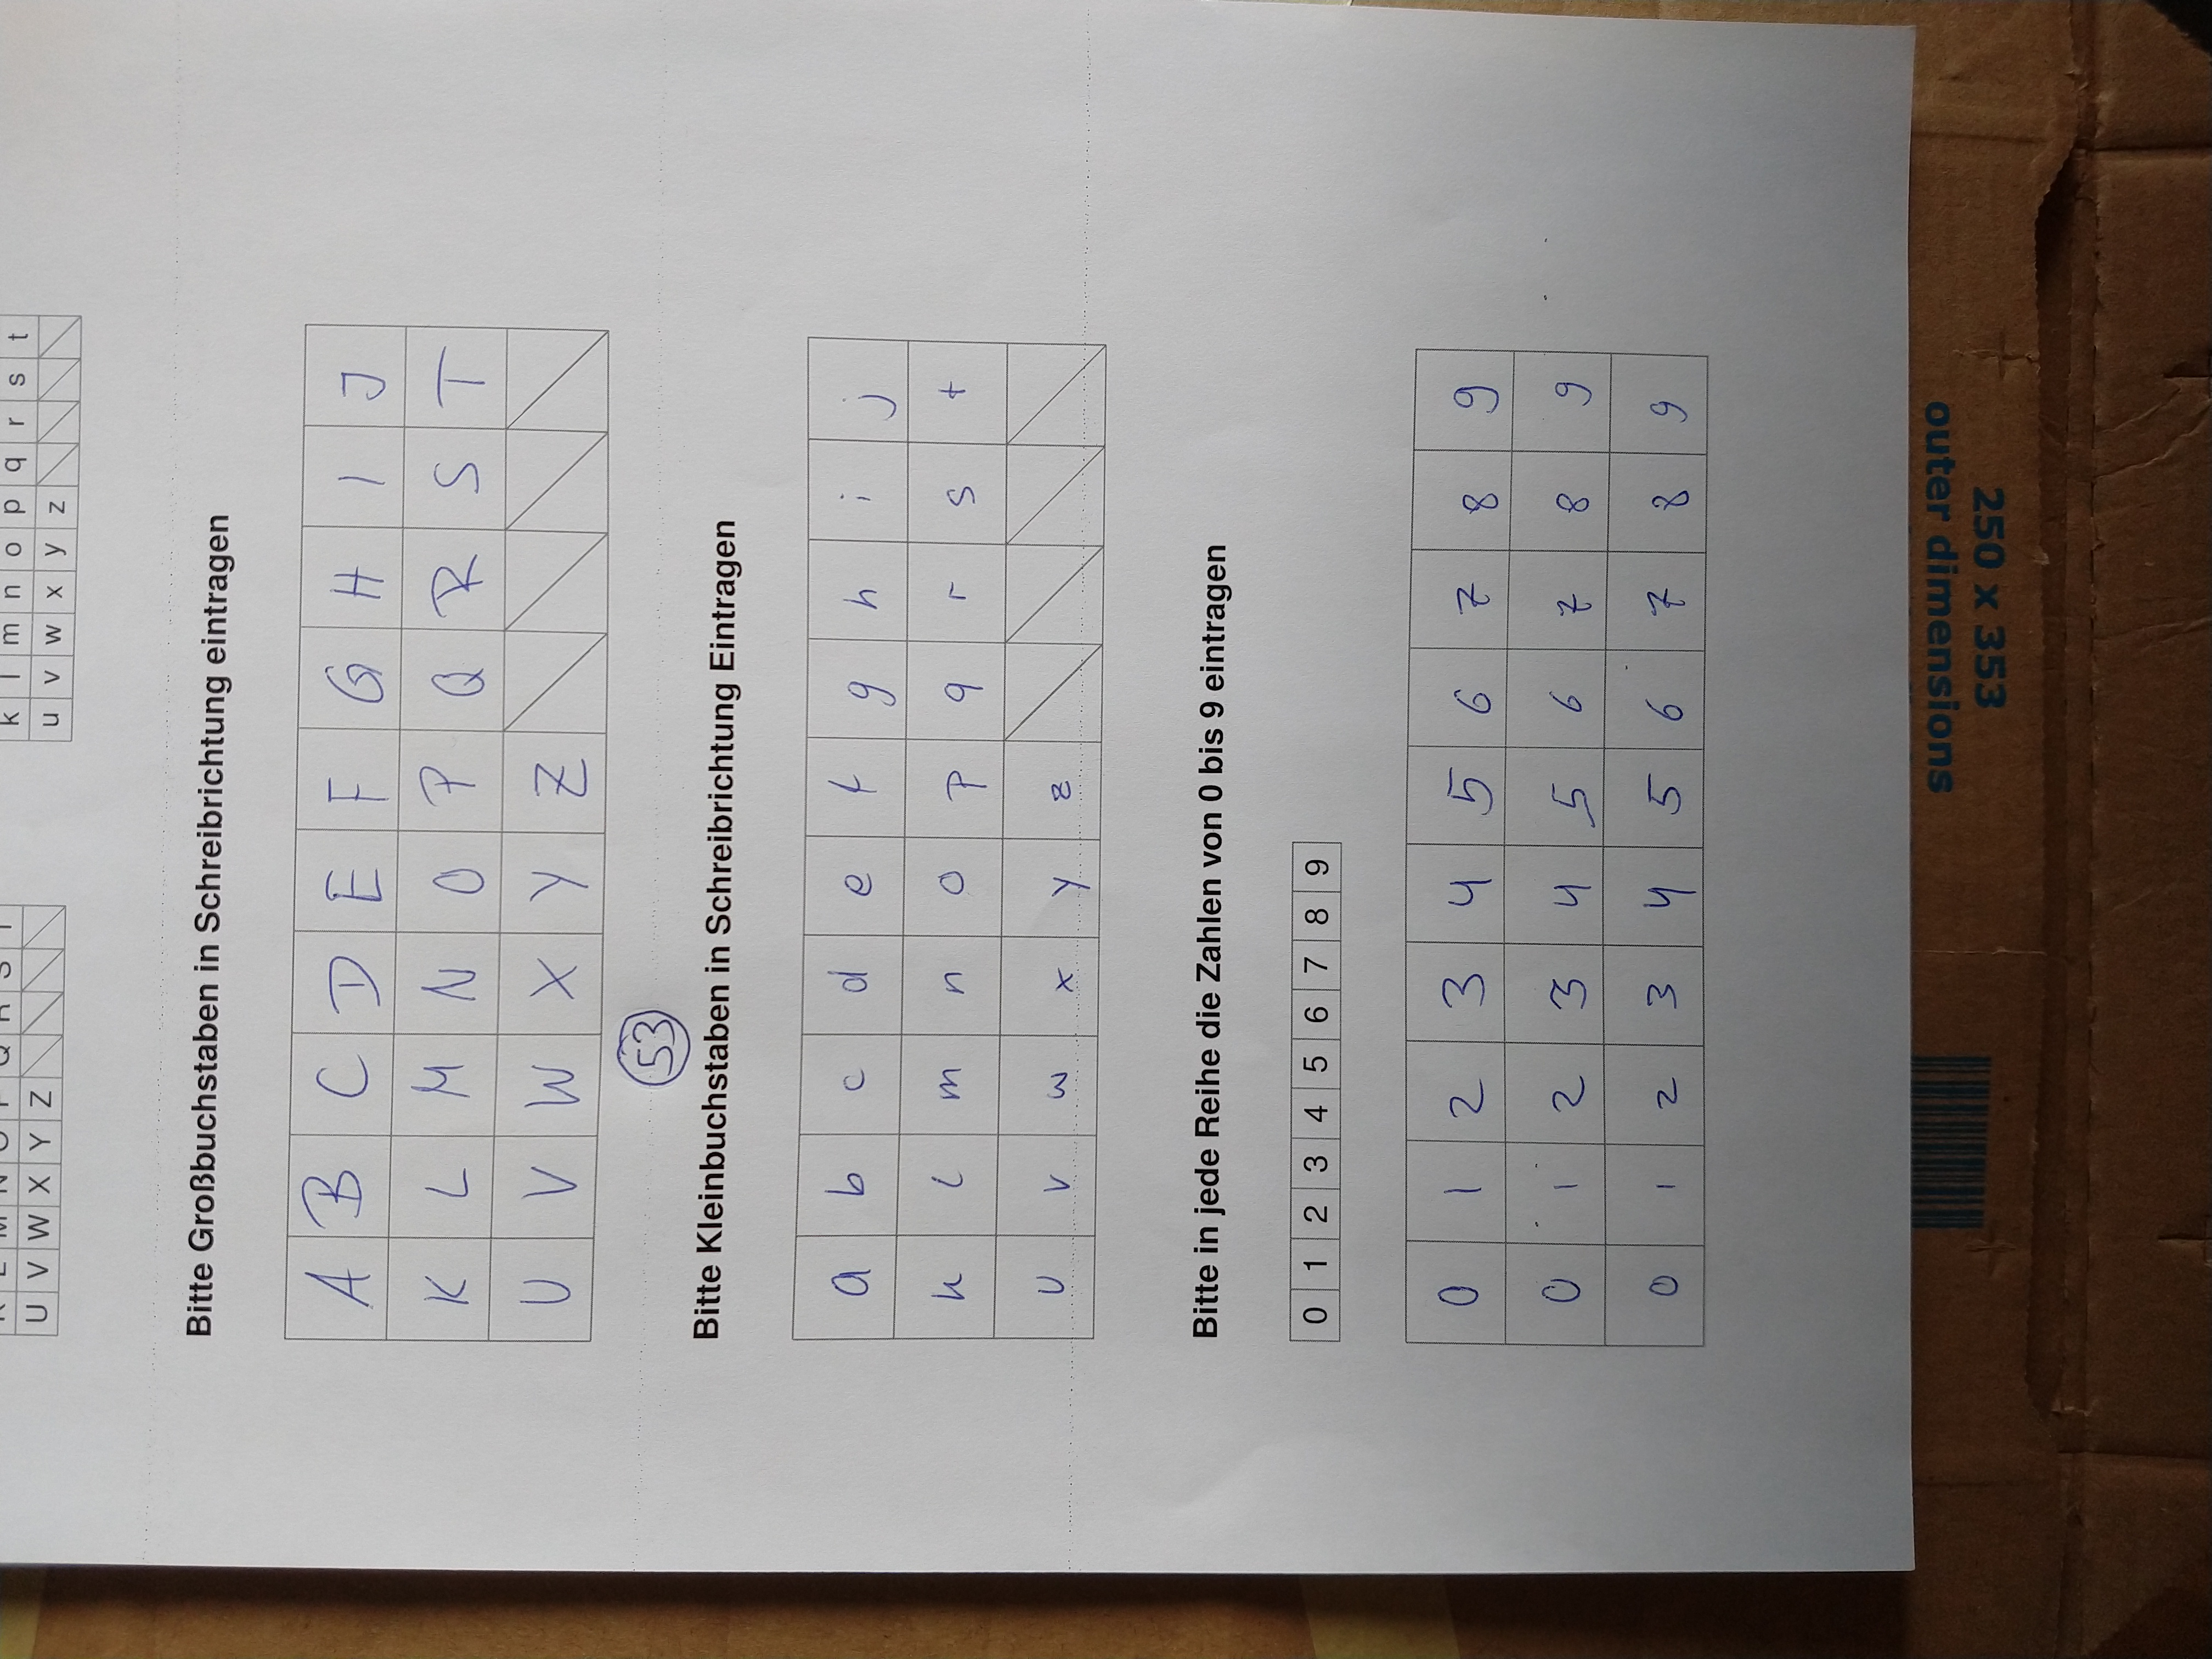 K L M N O P Q R S T
k l m n o p q r s t
U V W X Y Z
u v w x y z
Bitte Großbuchstaben in Schreibrichtung eintragen
A B C D E F G H I J
K L M N O P Q R S T
U V W X Y Z
53
Bitte Kleinbuchstaben in Schreibrichtung Eintragen
a b c d e f g h i j
k l m n o p q r s t
u v w x y z
Bitte in jede Reihe die Zahlen von 0 bis 9 eintragen
0 1 2 3 4 5 6 7 8 9
0 1 2 3 4 5 6 7 8 9
0 1 2 3 4 5 6 7 8 9
0 1 2 3 4 5 6 7 8 9
250 x 353
outer dimensions